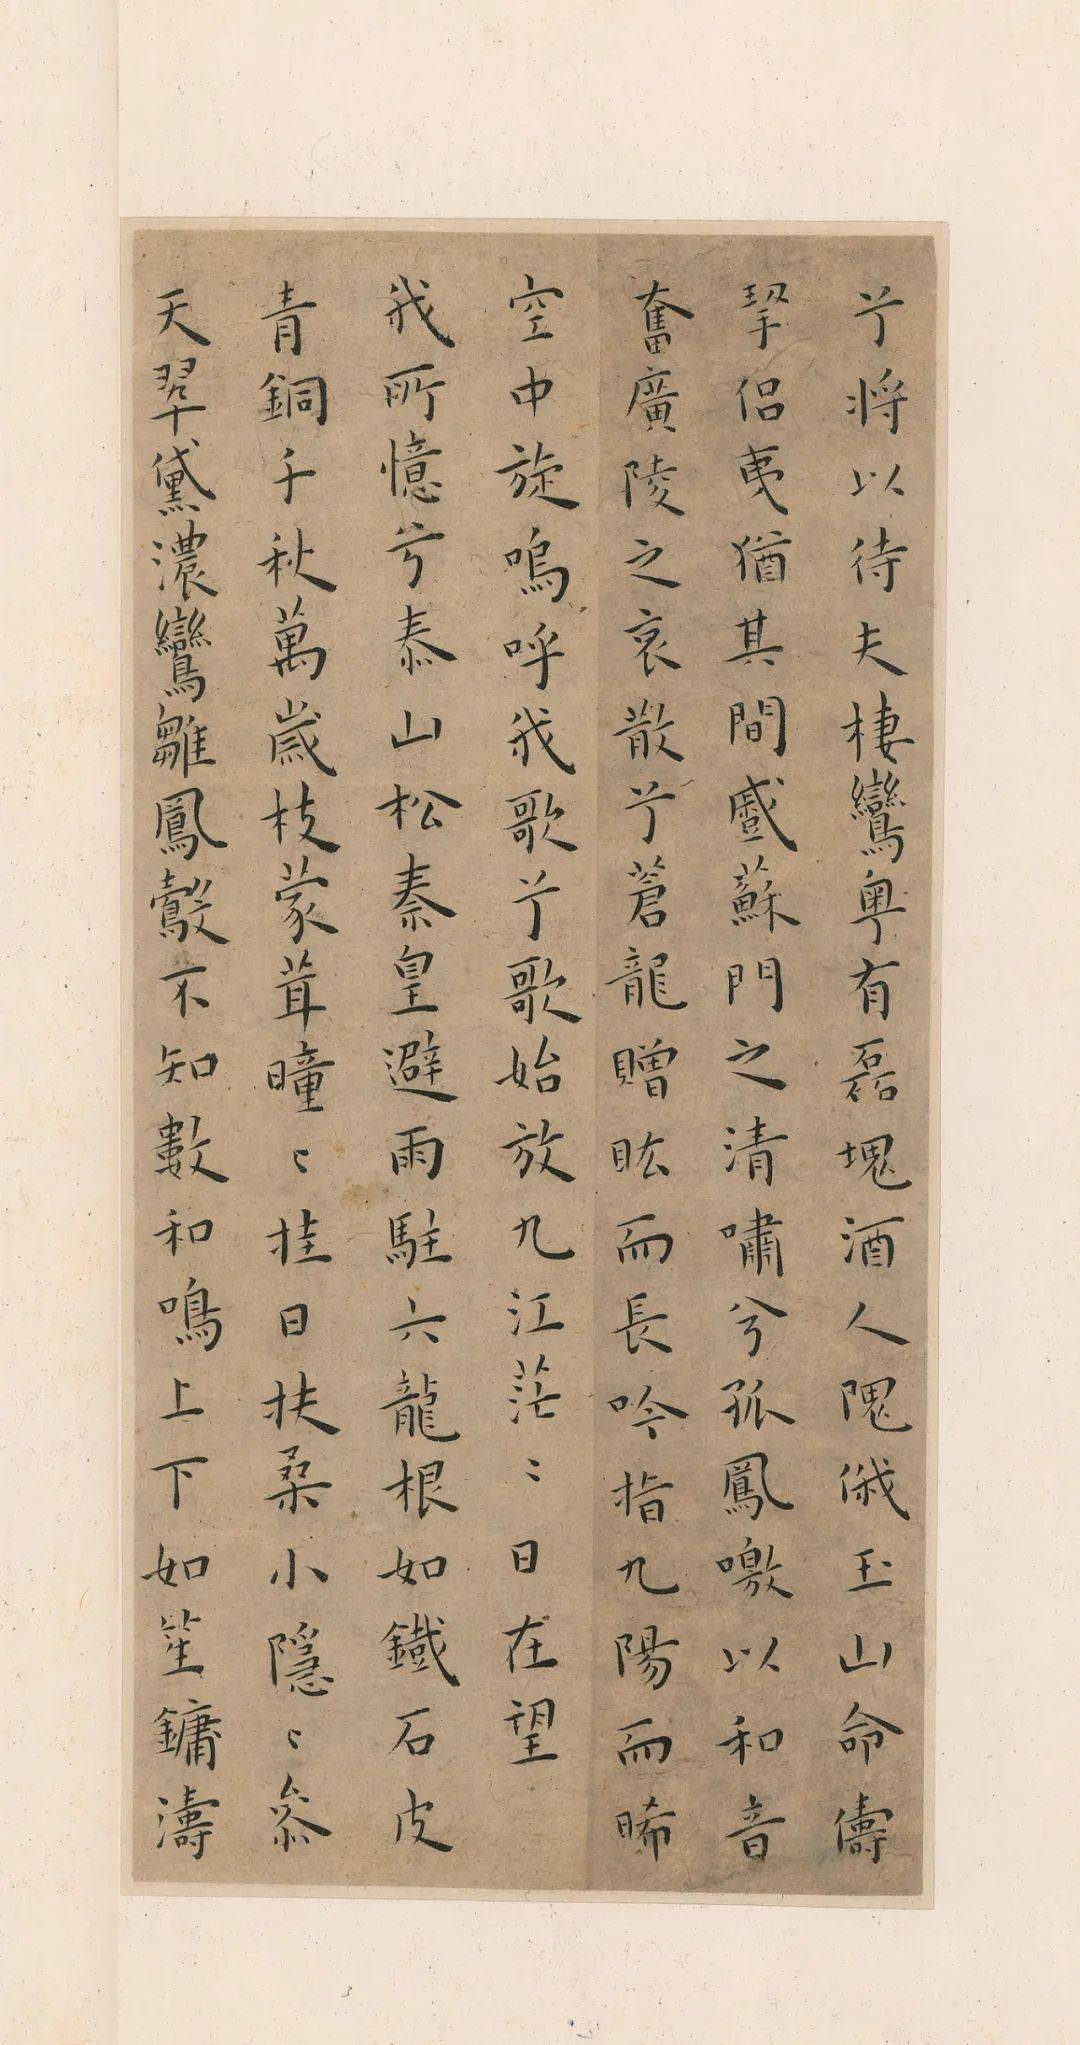 兮将以待夫棲鸞粤有磊塊酒人隗俄玉山命儔
挈侣夷猶其間感蘇門之清嘯兮孤鳳噭以和音
奮廣陵之哀散兮蒼龍贈眩而長吟指九陽而晞
空中旋嗚呼我歌兮歌始放九江茫〻日在望
我所憶兮泰山松秦皇避雨駐六龍根如鐵石皮
青銅千秋萬歲枝蒙茸曈〻挂日扶桑小隱〻參
天翠黛濃鸞雛鳳鷇不知數和鳴上下如笙鏞濤